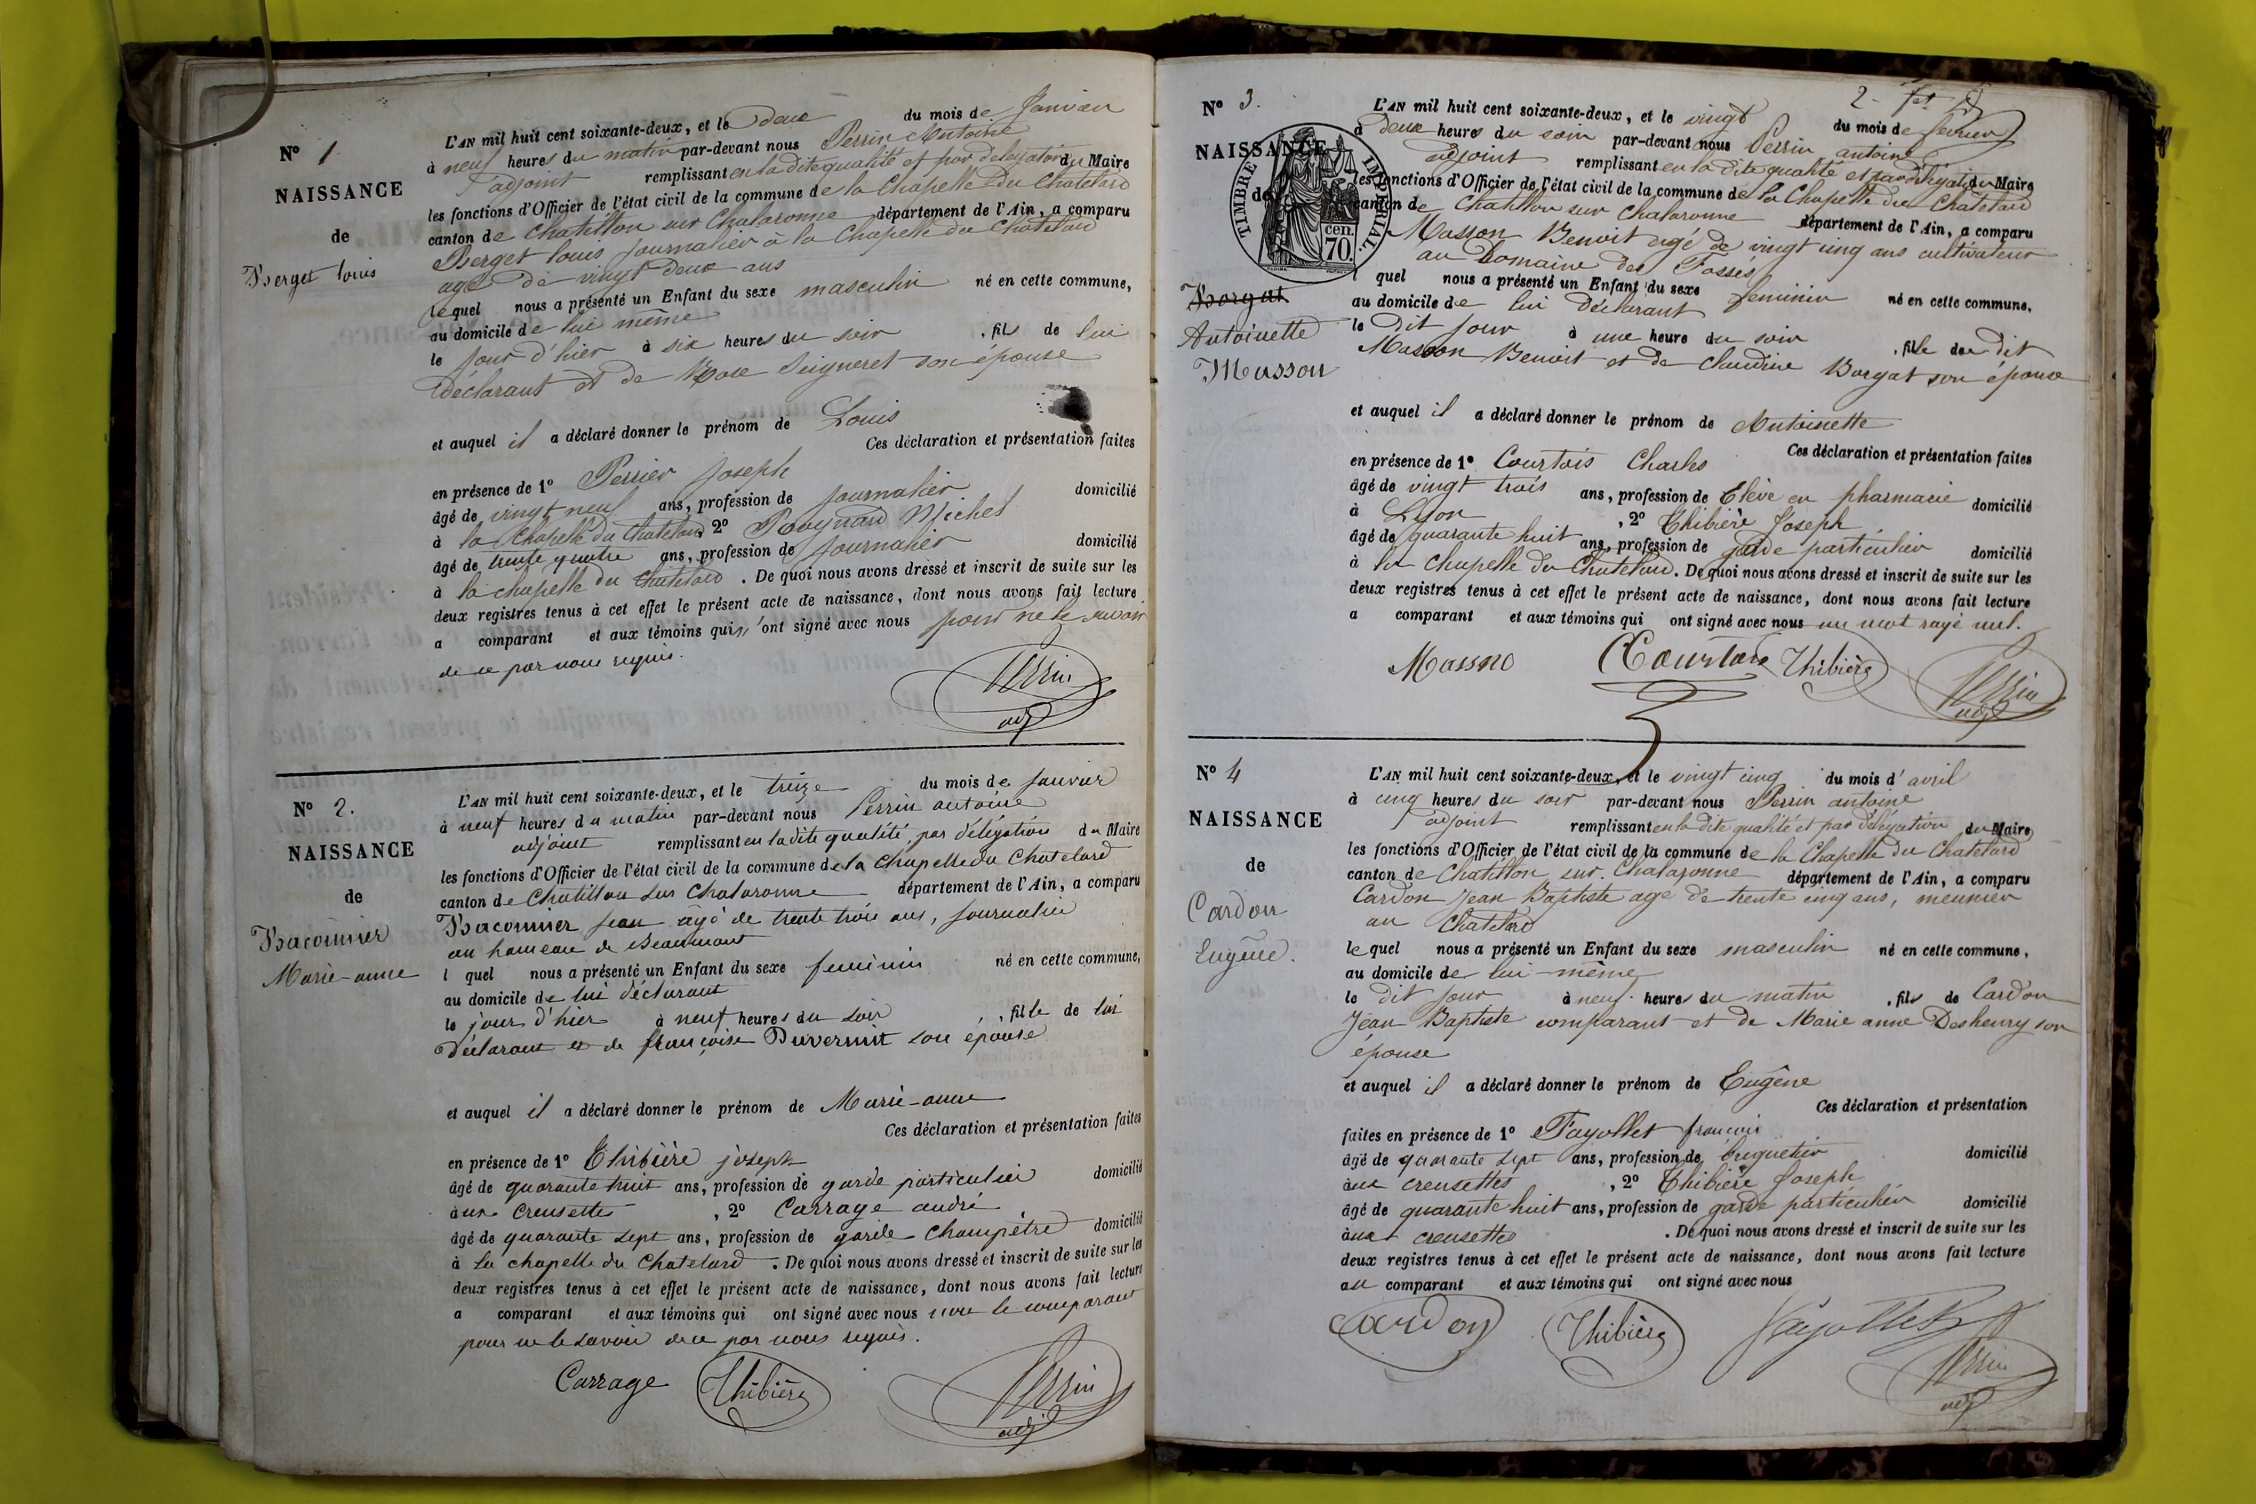 N° 1
NAISSANCE
de
Berget Louis
L'AN mil huit cent soixante-deux, et le deux du mois de Janvier
à neuf heures du matin par-devant nous Perrin Antoine
adjoint remplissant en la dite qualité et par délégation du Maire
les fonctions d'Officier de l'état civil de la commune de la Chapelle du Chatelard
canton de Chatillon sur Chalaronne département de l'Ain, a comparu
Berget Louis journalier à la Chapelle du Chatelard
agé de vingt deux ans
lequel nous a présenté un Enfant du sexe masculin né en cette commune,
au domicile de lui même
le jour d'hier à six heures du soir , fils de lui
déclarant et de Rose Seigneret son épouse
et auquel il a déclaré donner le prénom de Louis
Ces déclaration et présentation faites
en présence de 1° Perrier Joseph
âgé de vingt neuf ans, profession de journalier domicilié
à la Chapelle du Chatelard 2° Michel
âgé de trente quatre ans, profession de journalier domicilié
à la chapelle du Chatelard . De quoi nous avons dressé et inscrit de suite sur les
deux registres tenus à cet effet le présent acte de naissance, dont nous avons fait lecture
a comparant et aux témoins qui n'ont signé avec nous pour ne le savoir
de ce par nous requis.
Perrin
adj
N° 2.
NAISSANCE
de
Baconnier
Marie-anne
L'AN mil huit cent soixante-deux, et le treize du mois de Janvier
à neuf heures du matin par-devant nous Perrin antoine
adjoint remplissant en la dite qualité, par délégation du Maire
les fonctions d'Officier de l'état civil de la commune de la Chapelle du Chatelard
canton de Chatillon sur Chalaronne département de l'Ain, a comparu
Baconnier Jean âgé de trente trois ans, journalier
au hameau de Beaumont
l quel nous a présenté un Enfant du sexe feminin né en cette commune,
au domicile de lui déclarant
le jour d'hier à neuf heures du soir , fille de lui
déclarant et de françoise son épouse
et auquel il a déclaré donner le prénom de Marie-anne
Ces déclaration et présentation faites
en présence de 1° Thibière joseph
âgé de quarante huit ans, profession de garde particulier domicilié
aux Creusettes , 2° Carrage andré
âgé de quarante sept ans, profession de garde champêtre domicilié
à la chapelle du Chatelard . De quoi nous avons dressé et inscrit de suite sur les
deux registres tenus à cet effet le présent acte de naissance, dont nous avons fait lecture
a comparant et aux témoins qui ont signé avec nous non le comparant
pour ne le savoir de ce par nous requis.
Carrage Thibière Perrin
adj
2
N° 3.
NAISSANCE
de
TIMBRE IMPERIAL.
70. cen.
Borgat
Antoinette
Masson
L'AN mil huit cent soixante-deux, et le vingt du mois de fevrier
à deux heures du soir par-devant nous Perrin antoine
adjoint remplissant en la dite qualité et par délégation du Maire
les fonctions d'Officier de l'état civil de la commune de la Chapelle du Chatelard
canton de Chatillon sur Chalaronne département de l'Ain, a comparu
Masson Benoit agé de vingt cinq ans cultivateur
au Domaine des Fossés
l quel nous a présenté un Enfant du sexe feminin né en cette commune,
au domicile de lui déclarant
le dit jour à une heure du soir , fille du dit
Masson Benoit et de Claudine Borgat son épouse
et auquel il a déclaré donner le prénom de Antoinette
Ces déclaration et présentation faites
en présence de 1° Courtois Charles
âgé de vingt trois ans, profession de Elève en pharmacie domicilié
à Lyon , 2° Thibière Joseph
âgé de quarante huit ans, profession de garde particulier domicilié
à la Chapelle du Chatelard. De quoi nous avons dressé et inscrit de suite sur les
deux registres tenus à cet effet le présent acte de naissance, dont nous avons fait lecture
a comparant et aux témoins qui ont signé avec nous un mot rayé nul.
Masson Courtois Thibière Perrin
adj
N° 4
NAISSANCE
de
Cardon
Eugène.
L'AN mil huit cent soixante-deux, et le vingt cinq du mois d'avril
à cinq heures du soir par-devant nous Perrin antoine
adjoint remplissant en la dite qualité et par délégation du Maire
les fonctions d'Officier de l'état civil de la commune de la Chapelle du Chatelard
canton de Chatillon sur Chalaronne département de l'Ain, a comparu
Cardon Jean Baptiste agé de trente cinq ans, meunier
au Chatelard
le quel nous a présenté un Enfant du sexe masculin né en cette commune,
au domicile de lui-même
le dit jour à neuf heures du matin , fils de Cardon
Jean Baptiste comparant et de Marie anne Desheury son
épouse
et auquel il a déclaré donner le prénom de Eugène
Ces déclaration et présentation
faites en présence de 1° Fayollet francois
âgé de quarante sept ans, profession de briquetier domicilié
aux creusettes , 2° Thibière Joseph
âgé de quarante huit ans, profession de garde particulier domicilié
aux creusettes . De quoi nous avons dressé et inscrit de suite sur les
deux registres tenus à cet effet le présent acte de naissance, dont nous avons fait lecture
au comparant et aux témoins qui ont signé avec nous
Cardon Thibière Fayollet
Perrin
adj